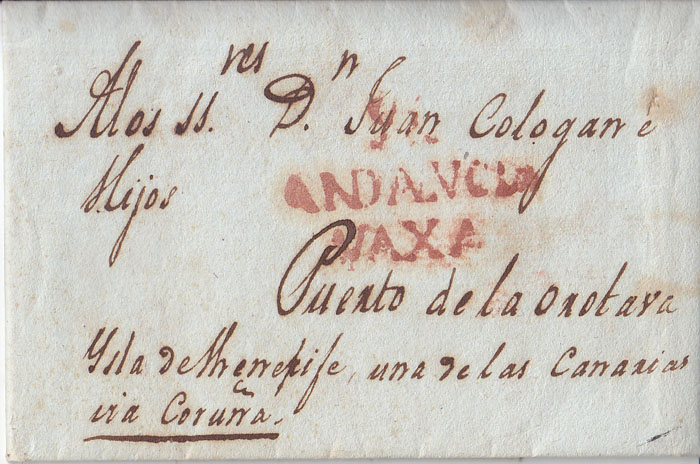 A los SS.res D.n Juan Cologan e
Hijos
ANDALUCIA
VAXA
Puerto de la Orotava
Ysla de Thenerife, una de las Canarias
via Coruña.